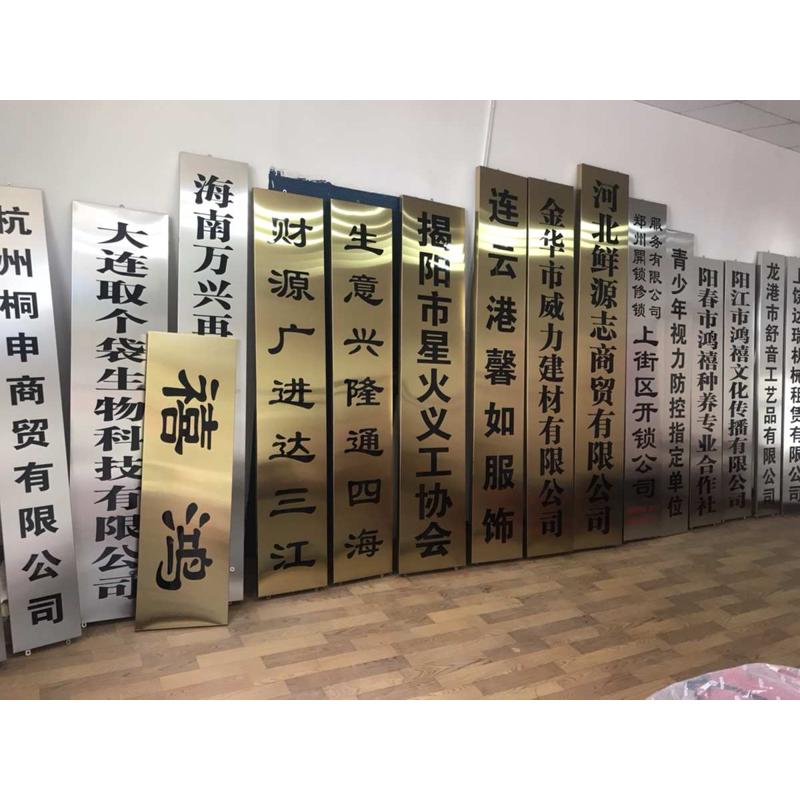 杭州桐申商贸有限公司
大连取个袋生物科技有限公司
海南万兴再
禧鸿
财源广进达三江
生意兴隆通四海
揭阳市星火义工协会
连云港馨如服饰
金华市威力建材有限公司
河北鲜源志商贸有限公司
郑州開锁修锁
服务有限公司
上街区开锁公司
青少年视力防控指定单位
阳春市鸿禧种养专业合作社
阳江市鸿禧文化传播有限公司
龙港市舒音工艺品有限公司
上饶达瑞机械租赁有限公